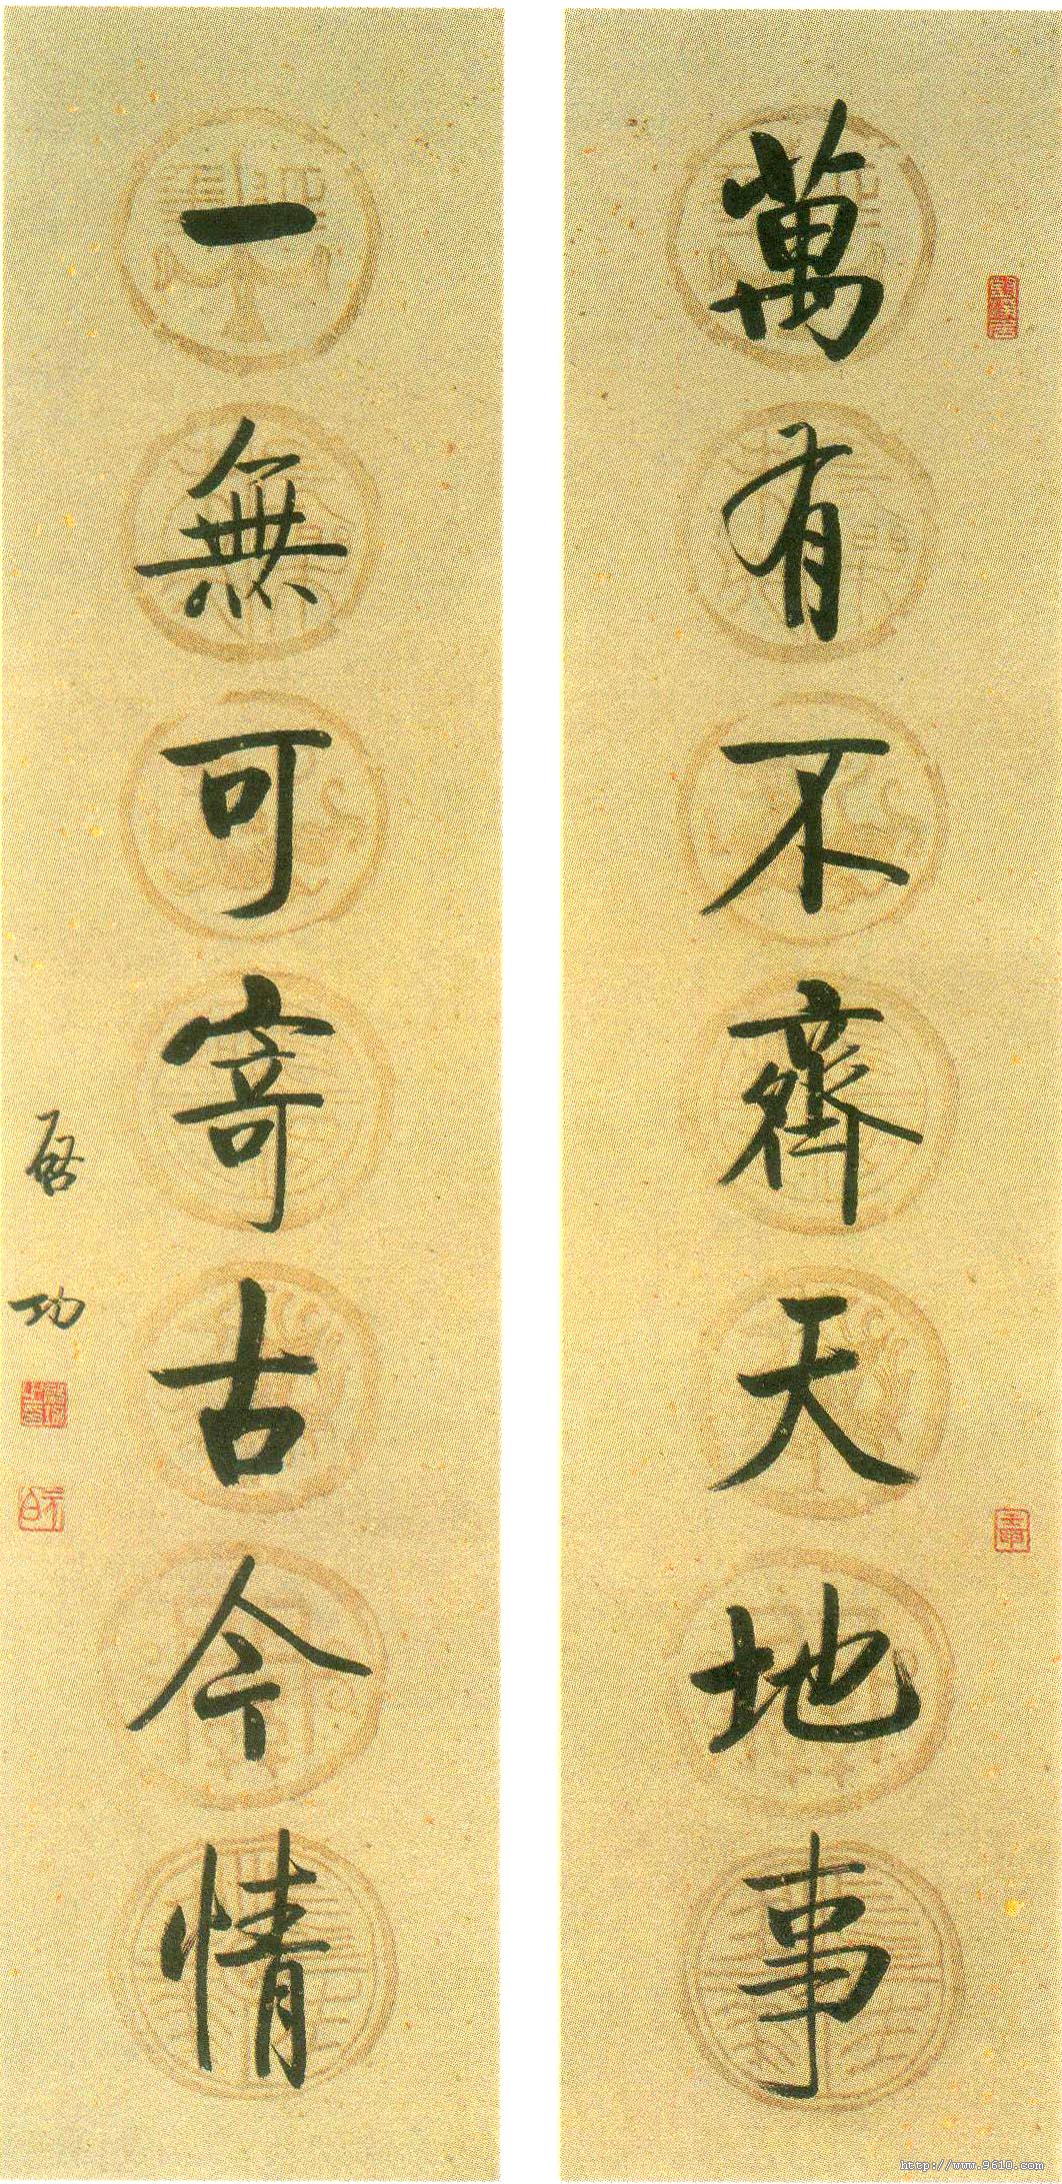 萬有不齊天地事
一無可寄古今情
啓功
http://www.9610.com